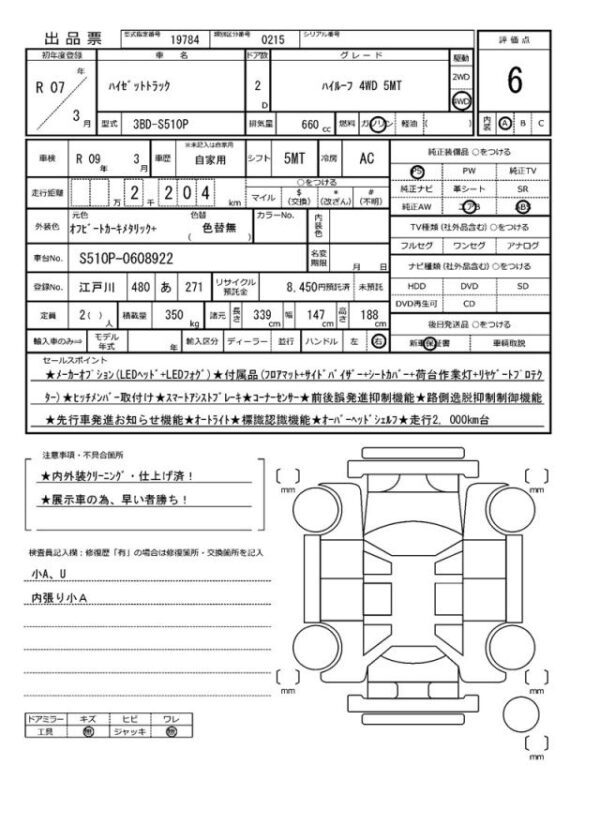 出品票 型式指定番号 19784 類別区分番号 0215 シリアル番号
評価点
初年度登録 車名 ドア数 グレード 駆動
R 07 年 3 月 ハイゼットトラック 2 D ハイルーフ 4WD 5MT 2WD 4WD
6
型式 3BD-S510P 排気量 660 cc 燃料 ガソリン 軽油 ( )
内装 A B C
車検 R 09 年 3 月 車歴 ※未記入は自家用 自家用 シフト 5MT 冷房 AC
純正装備品 ○をつける
PS PW 純正TV
純正ナビ 革シート SR
純正AW エアB ABS
走行距離 万 2 千 2 0 4 km ○をつける
マイル $(交換) *(改ざん) #(不明)
外装色 元色 オフビートカーキメタリック+ 色替 ( 色替無 ) カラーNo. 内装色
TV種類(社外品含む) ○をつける
フルセグ ワンセグ アナログ
車台No. S510P-0608922 名変期限 月 日
ナビ種類(社外品含む) ○をつける
HDD DVD SD
DVD再生可 CD
登録No. 江戸川 480 あ 271 リサイクル預託金 8,450円預託済 未預託
定員 2( )人 積載量 350 kg 諸元 長さ 339 cm 幅 147 cm 高さ 188 cm
後日発送品 ○をつける
新車保証書 車輌取説
輸入車のみ⇒ モデル年式 年 輸入区分 ディーラー 並行 ハンドル 左 右
セールスポイント
★メーカーオプション(LEDヘッド+LEDフォグ)★付属品(フロアマット+サイドバイザー+シートカバー+荷台作業灯+リヤゲートプロテク
ター)★ヒッチメンバー取付け★スマートアシストブレーキ★コーナーセンサー★前後誤発進抑制機能★路側逸脱抑制制御機能
★先行車発進お知らせ機能★オートライト★標識認識機能★オーバーヘッドシェルフ★走行2,000km台
注意事項・不具合箇所
★内外装クリーニング・仕上げ済!
★展示車の為、早い者勝ち!
検査員記入欄:修復歴「有」の場合は修復箇所・交換箇所を記入
小A、U
内張り小A
mm
mm
mm
mm
mm
ドアミラー キズ ヒビ ワレ
工具 無 ジャッキ 無